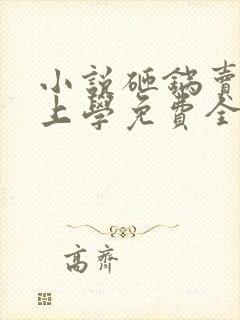 小說砸鍋賣
上學免費全
高齋